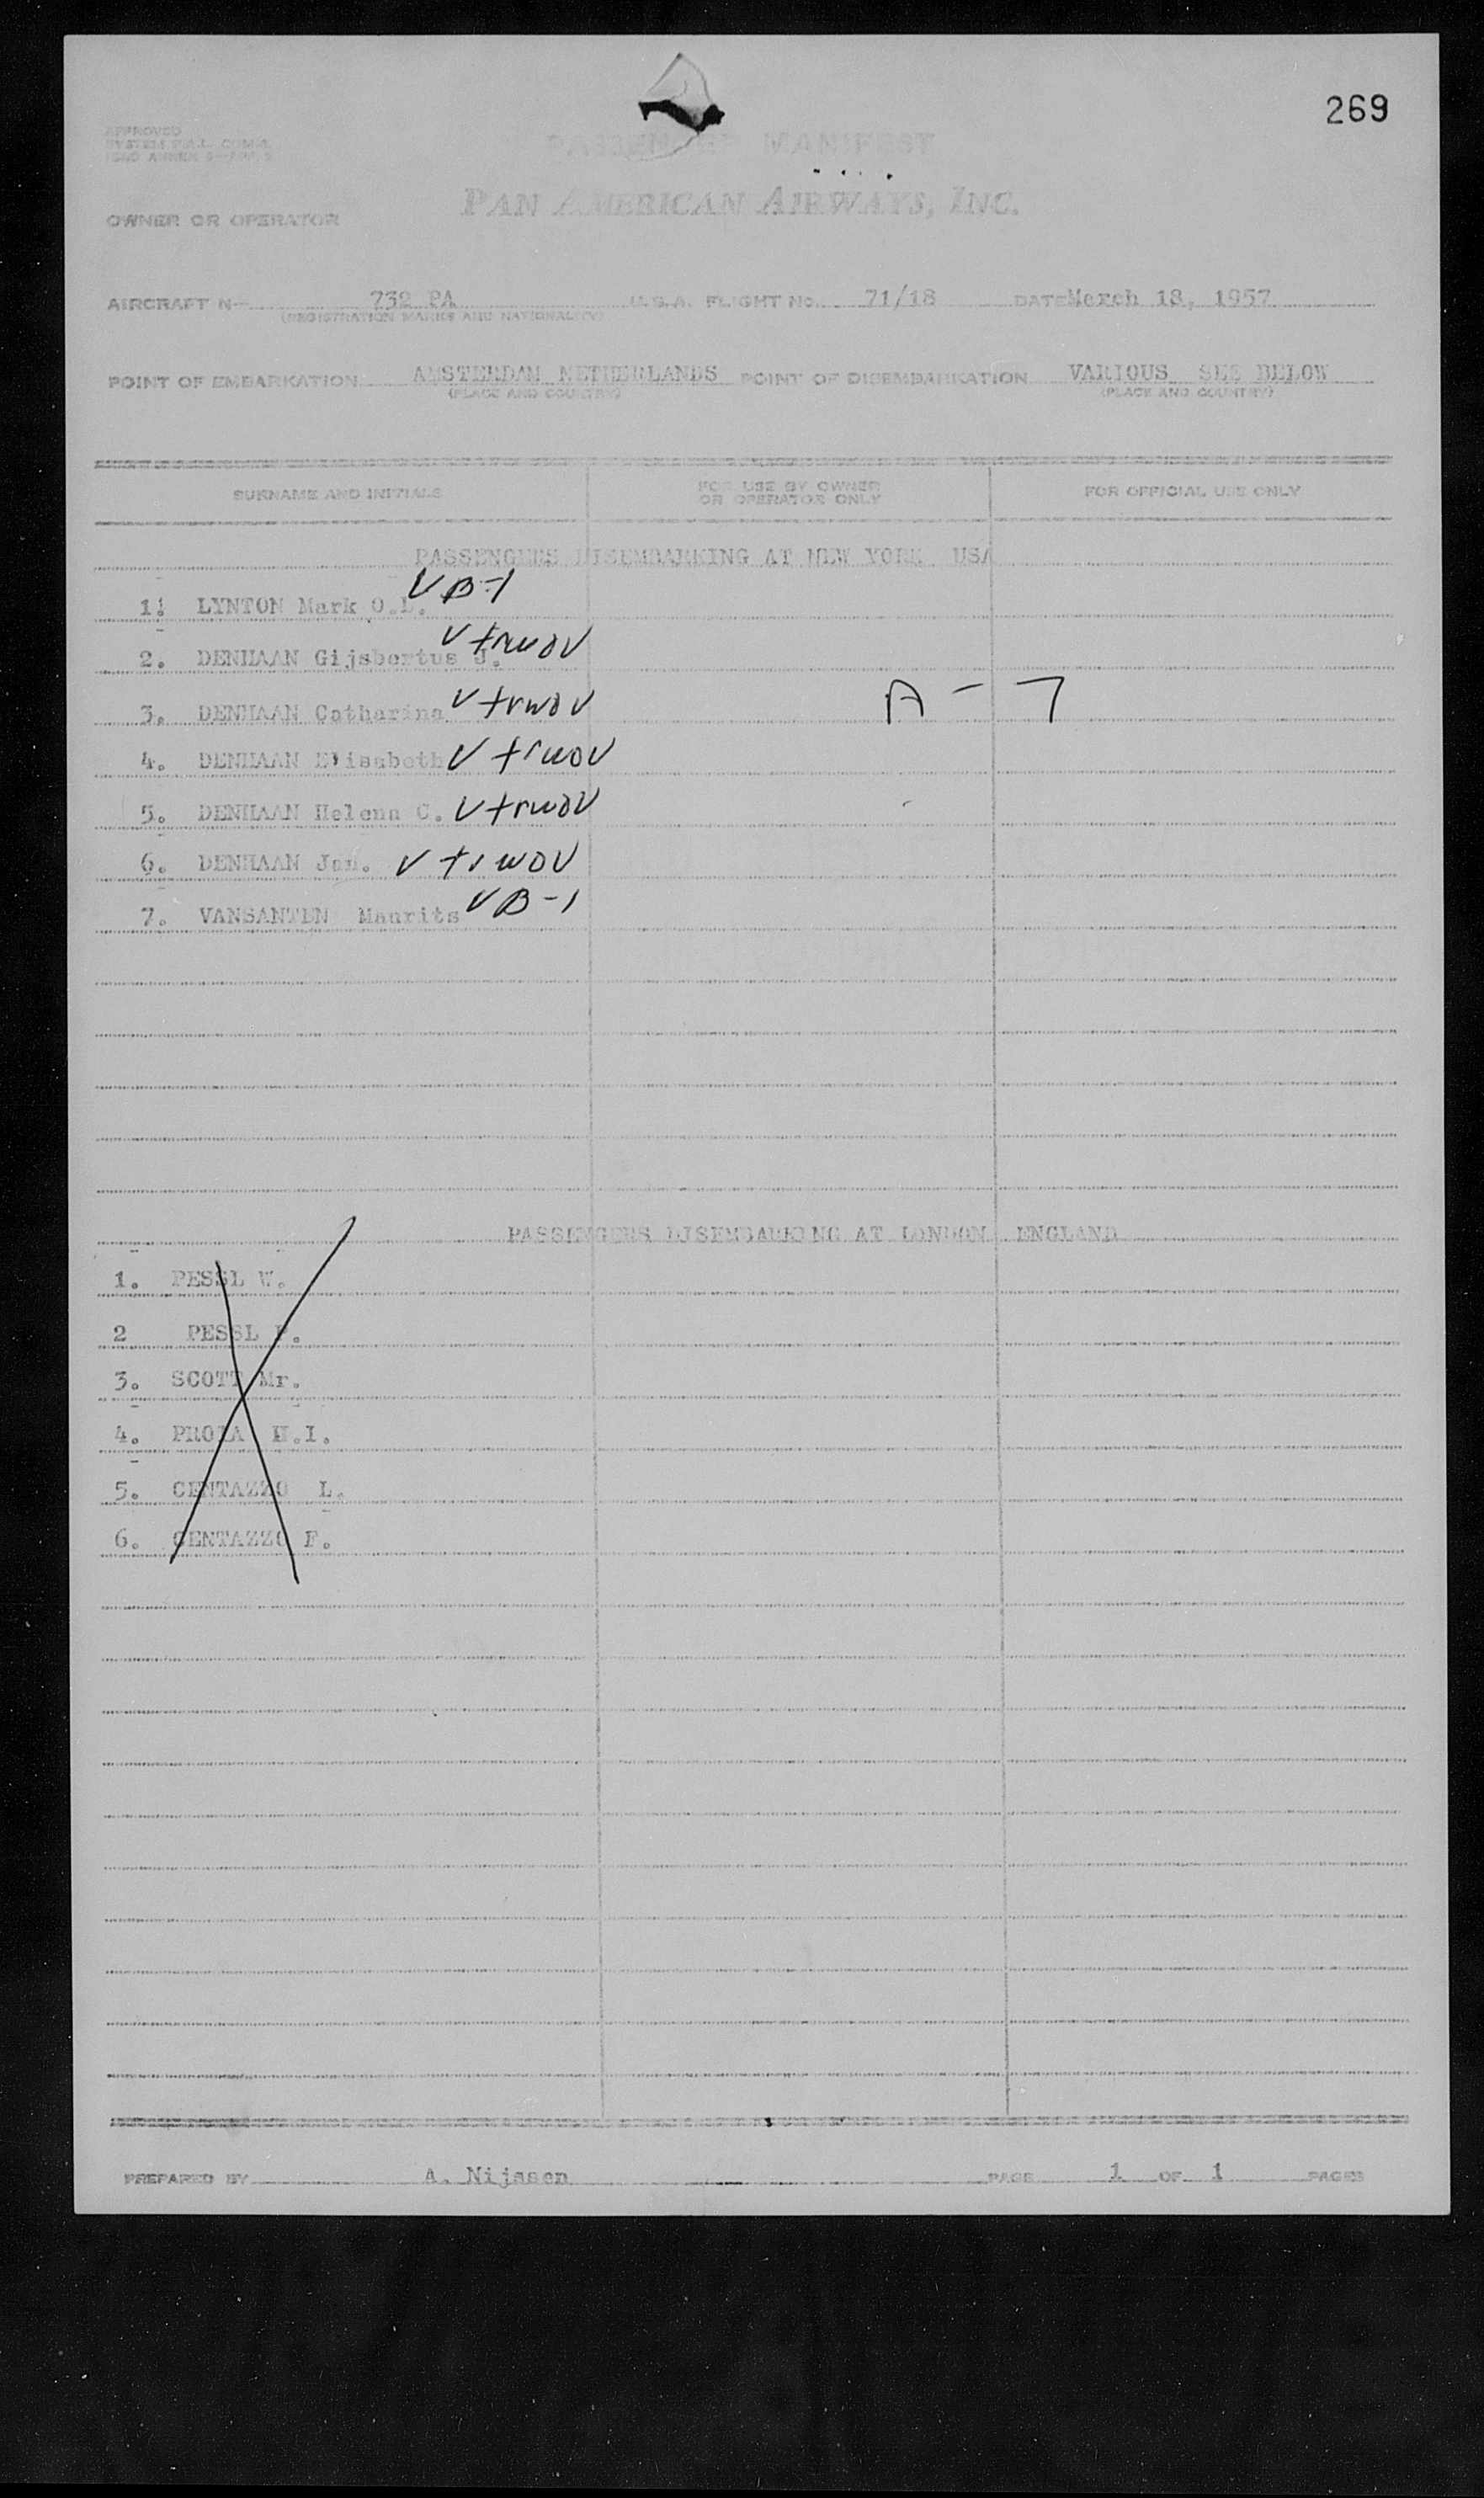 269
APPROVED
PASSENGER MANIFEST
PAN AMERICAN AIRWAYS, INC.
OWNER OR OPERATOR
AIRCRAFT N— 732 PA U.S.A. FLIGHT NO. 71/18 DATE March 18, 1957
(REGISTRATION MARKS AND NATIONALITY)
POINT OF EMBARKATION AMSTERDAM NETHERLANDS POINT OF DISEMBARKATION VARIOUS SEE BELOW
(PLACE AND COUNTRY) (PLACE AND COUNTRY)
SURNAME AND INITIALS FOR USE BY OWNER OR OPERATOR ONLY FOR OFFICIAL USE ONLY
PASSENGERS DISEMBARKING AT NEW YORK USA
1. LYNTON Mark O.L. B-1
2. DENHAAN Gijsbertus J.
3. DENHAAN Catharina A-7
4. DENHAAN Elisabeth
5. DENHAAN Helena C.
6. DENHAAN Jan.
7. VANSANTEN Maurits B-1
PASSENGERS DISEMBARKING AT LONDON ENGLAND
1. PESSL W.
2 PESSL P.
3. SCOTT Mr.
4. PROIA H.I.
5. CENTAZZO L.
6. CENTAZZO F.
PREPARED BY A. Nijssen PAGE 1 OF 1 PAGES